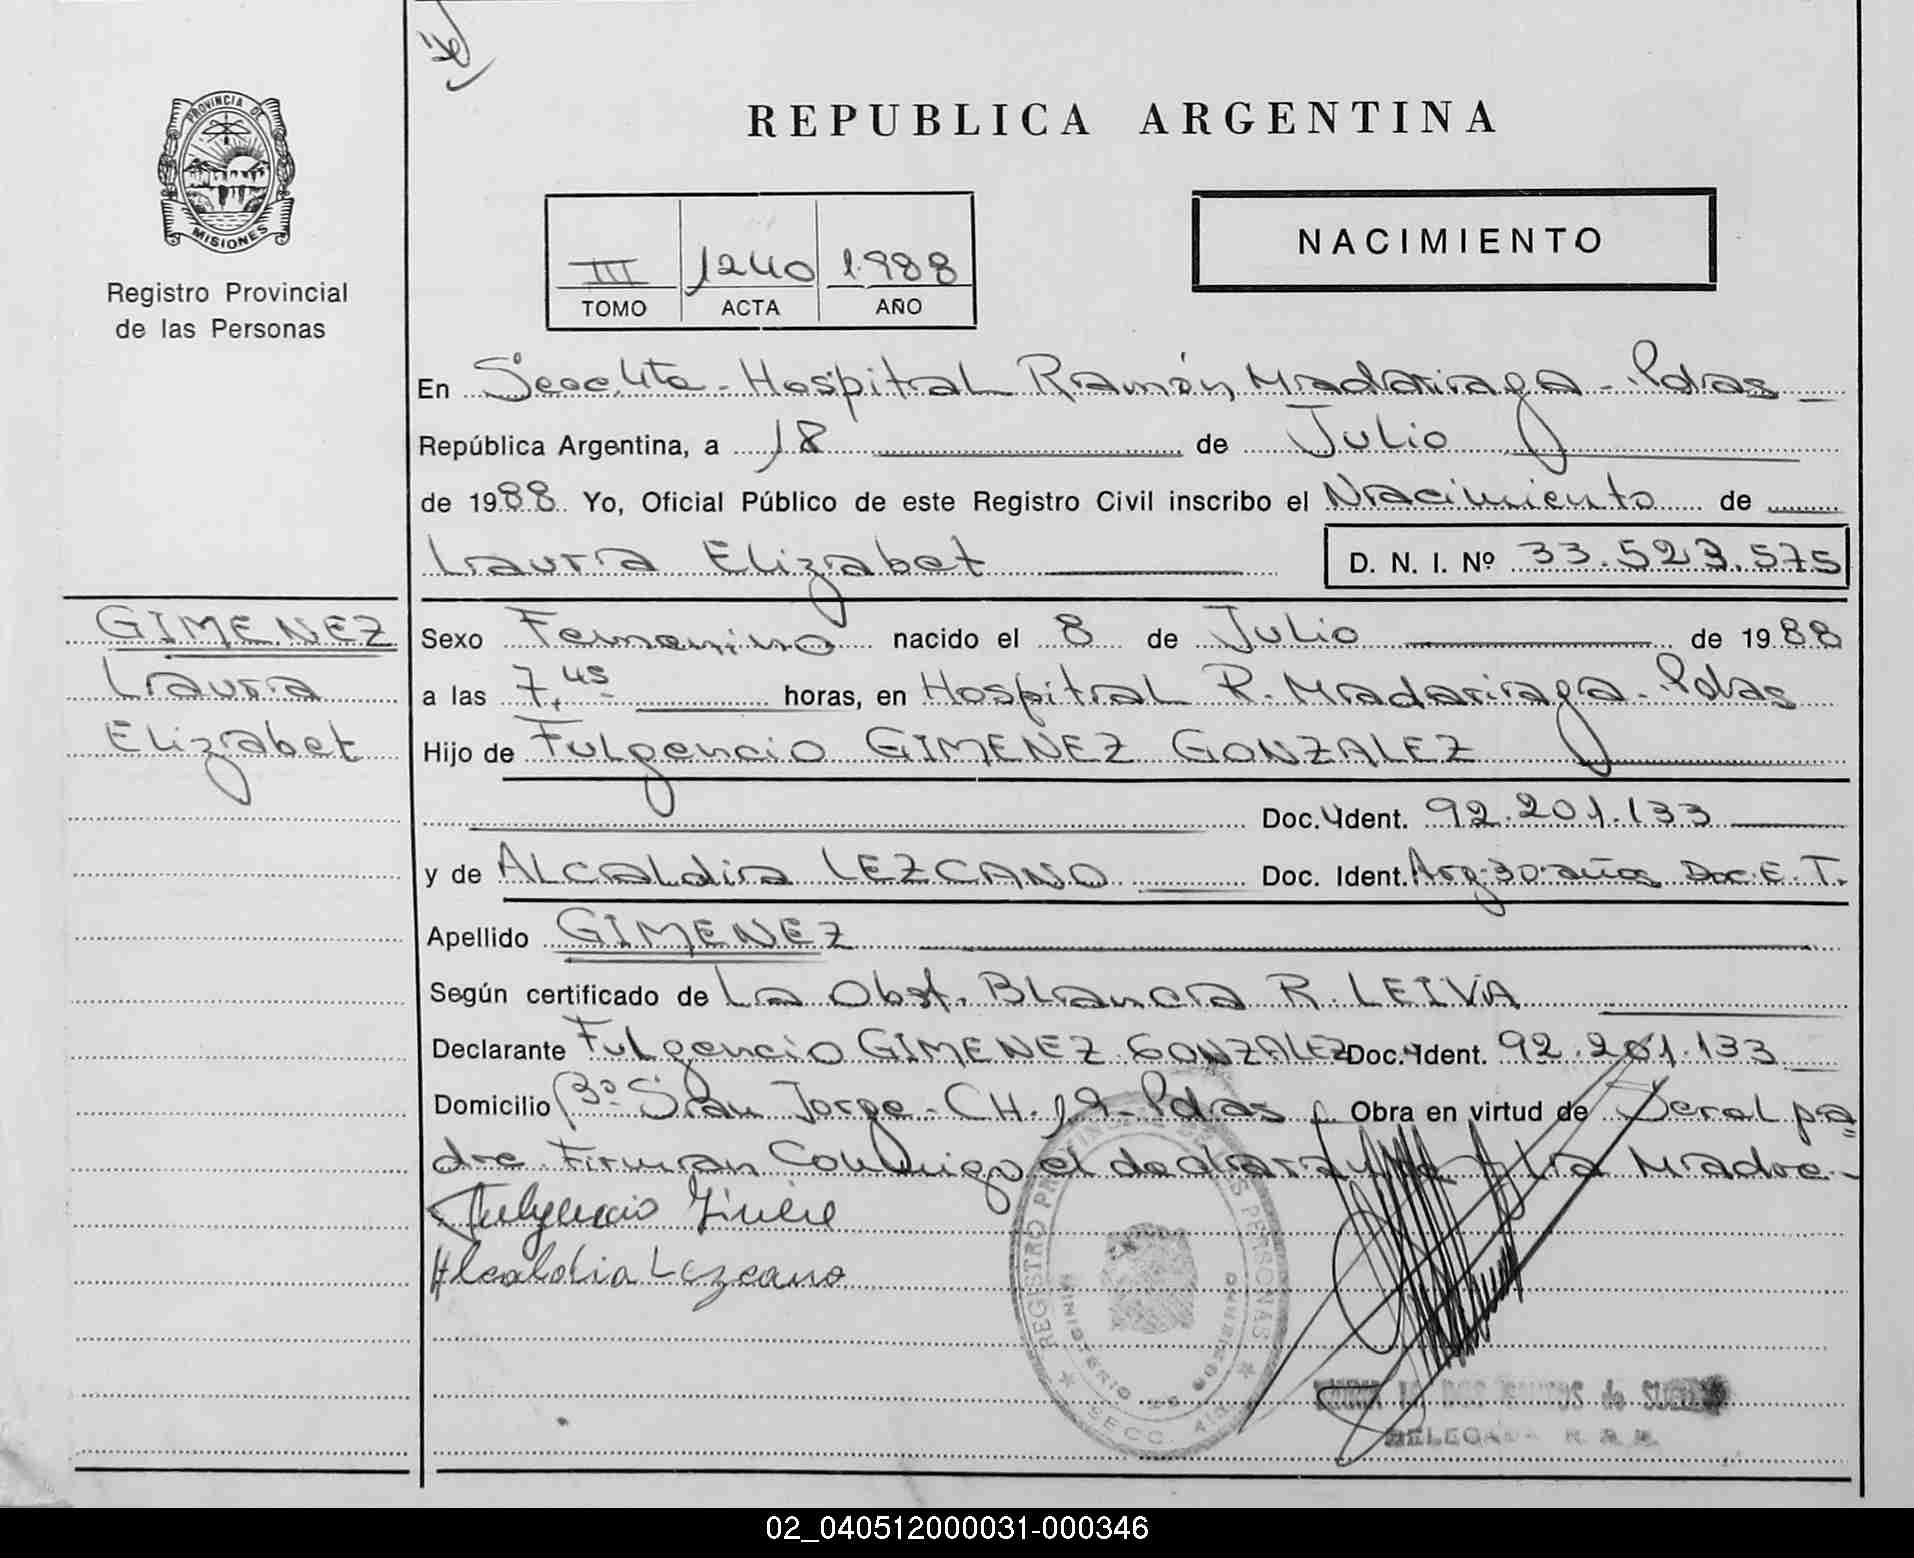 PROVINCIA DE
MISIONES
Registro Provincial
de las Personas
REPUBLICA ARGENTINA
III 1240 1988
TOMO ACTA AÑO
NACIMIENTO
En Secc. 4ta - Hospital Ramón Madariaga - Pdas
República Argentina, a 18 de Julio
de 1988 Yo, Oficial Público de este Registro Civil inscribo el Nacimiento de
Laura Elizabet D. N. I. Nº 33.523.575
GIMENEZ
Laura
Elizabet
Sexo Femenino nacido el 8 de Julio de 1988
a las 7,45 horas, en Hospital R. Madariaga - Pdas
Hijo de Fulgencio GIMENEZ GONZALEZ
Doc. Ident. 92.201.133
y de ALcaldia LEZCANO Doc. Ident. Arg. 30 años Doc. E. T.
Apellido GIMENEZ
Según certificado de La Obst. Blanca R. LEIVA
Declarante Fulgencio GIMENEZ GONZALEZ Doc. Ident. 92.201.133
Domicilio Bº San Jorge - CH. 19 - Pdas Obra en virtud de Ser el pa
dre. Firman Conmigo el declarante y la Madre -
Fulgencio
Alcaldia Lezcano
REGISTRO PROVINCIAL DE LAS PERSONAS
MINISTERIO DE GOBIERNO
SECC. 4ta
DELEGADA R. P. P.
02_040512000031-000346